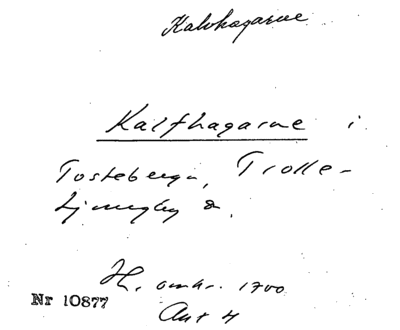 Kalvhagarne
Kalfhagarne i
Tosteberga, Trolle-
Ljungby s.
H. omkr. 1700
Nr 10877
Akt 4